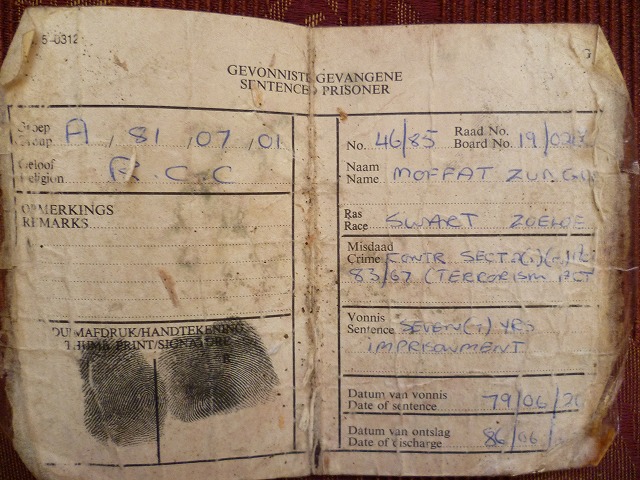 5-0312
GEVONNISTE GEVANGENE
SENTENCED PRISONER
Groep
Group A / 81 / 07 / 01
Geloof
Religion R. C. C
OPMERKINGS
REMARKS
DUIMAFDRUK/HANDTEKENING
THUMB PRINT/SIGNATURE
No. 46/85 Raad No.
Board No. 19/
Naam
Name MOFFAT
Ras
Race SWART ZOELOE
Misdaad
Crime CONTR. SECT
83/67 (TERRORISM ACT
Vonnis
Sentence SEVEN(7) YRS
IMPRISONMENT
Datum van vonnis
Date of sentence 79/06/
Datum van ontslag
Date of discharge 86/06/